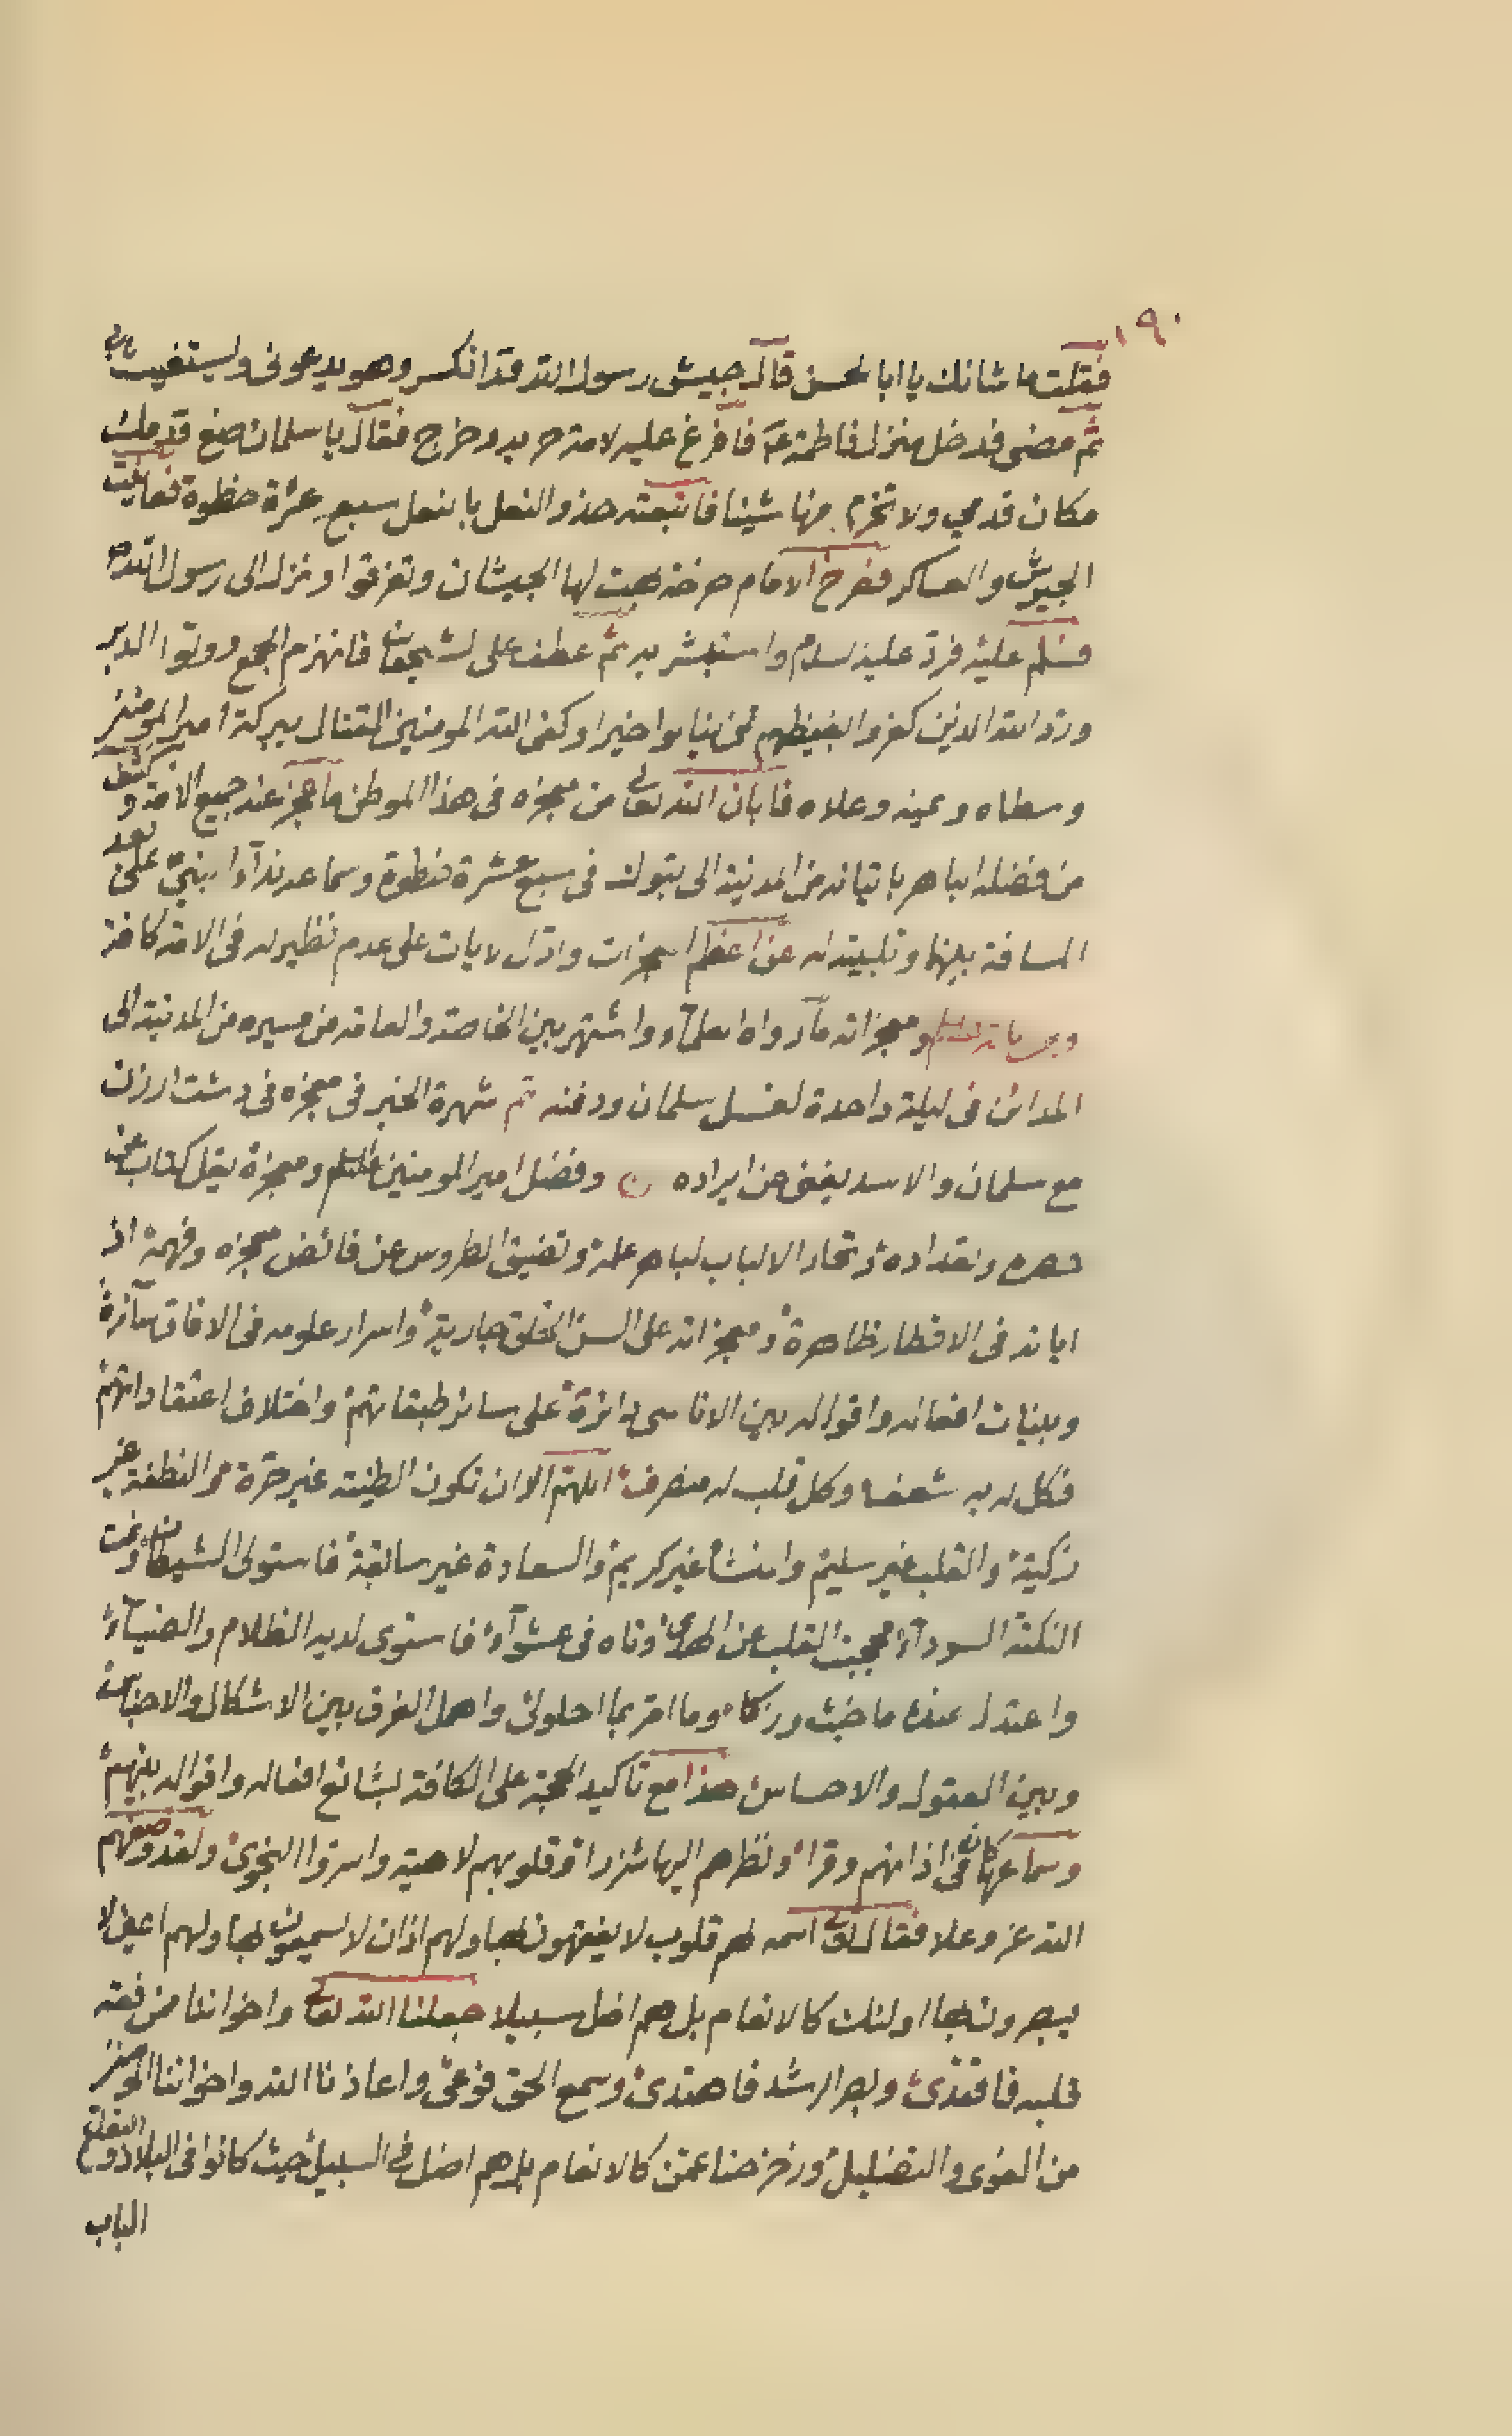 ١٩٠
فقلت ما شانك يا ابا لحسن قال جيش رسول الله قد انكسر وهو يدعونى ويستغيث بى
ثم مضى فدخل منزل فاطمة ع فافرغ عليه لامة حربه وخرج فقال يا سلمان ضع قدمك
مكان قدمي ولا تخرم منها شيئا فاتبعته حذو النعل بالنعل سبع عشرة خطوة فعاينت
الجيوش والعساكر فصرخ الامام صرخة لها الجيشان وتفرقوا ونزل الى رسول الله
فسلم عليه فرد عليه السلام واستبشر به ثم عطف على الشجعان فانهزم الجمع وولوا الدبر
ورد الله الذين كفروا بغيظهم لن ينالوا خيرا وكفى الله المومنين القتال ببركة امير المومنين
وسطاه وعلاه فابان الله تعالى من معجزه فى هذا الموطن ما عجز عنه جميع الامة وكشف
من فضله الباهر باتيانه من المدينة الى تبوك فى سبع عشرة خطوة وسماعه نداء النبي على بعد
المسافة بينها وتلبيته له من اعظم المعجزات وادل الايات على عدم نظير له فى الامة كافة
ومعجزاته ما رواه العلماء واشتهر بين الخاصة والعامة من مسيره من المدينة الى
المدائن فى ليلة واحدة لغسل سلمان ودفنه ثم شهرة الخبر فى معجزه فى دشت ارزن
مع سلمان والاسد يغنى عن ايراده وفضل امير المومنين عليه السلم ومعجزة يقل كتاب عن
حصره وتعداده وتحار الالباب لباهر علمه وتضيق الطروس عن فائض معجزه وفهمه اذ
اياته فى الاقطار ظاهرة ومعجزاته على السن الخلق جارية واسرار علومه فى الافاق سائرة
وبينات افعاله واقواله بين الاناسى دائرة على سائر طبقاتهم واختلاف اعتقاداتهم
فكل له به شغف وكل قلب له منصرف اللهم الا ان تكون الطينة غير حرة والنطفة غير
زكية والقلب غير سليم والمنشأ غير كريم والسعادة غير سابقة فاستولى الشيطان ونمت
النكتة السوداء فحجبت القلب عن الهدى وتاه فى عشواء فاستوى لديه الظلام والضياء
واعتدل عنده ما خبث وزكا وما امر بما احلولى واهمل الفرق بين الاشكال والاجناس
وبين العقول والاحساس هذا مع تاكيد الحجة على الكافة لشائع افعاله واقواله بينهم
وسماعها كان فى اذانهم وقرا ونظرهم اليها شزرا وقلوبهم لاهية واسروا النجوى ولقد وصفهم
الله عز وعلا فقال تعالى اسمه لهم قلوب لا يفقهون بها ولهم اذان لا يسمعون بها ولهم اعين لا
يبصرون بها اولئك كالانعام بل هم اضل سبيلا جعلنا الله تعالى واخواننا من فقه
قلبه فاقتدى وبصر الرشد فاهتدى وسمع الحق فوعى واعاذنا الله واخواننا المومنين
من الغوى والتضليل وزحزحنا عمن كالانعام بل هم اضل فى السبيل حيث كانوا فى البلاد و
الباب